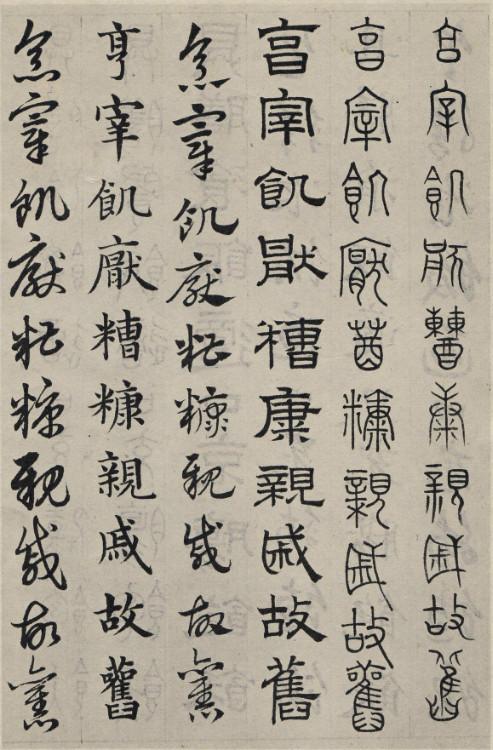 亯宰飢猒糟康親戚故舊
亯宰飢厭糟糠親戚故舊
亯宰飢猒糟康親戚故舊
亨宰飢厭糟糠親戚故舊
亨宰飢厭糟糠親戚故舊
亨宰飢厭糟糠親戚故舊